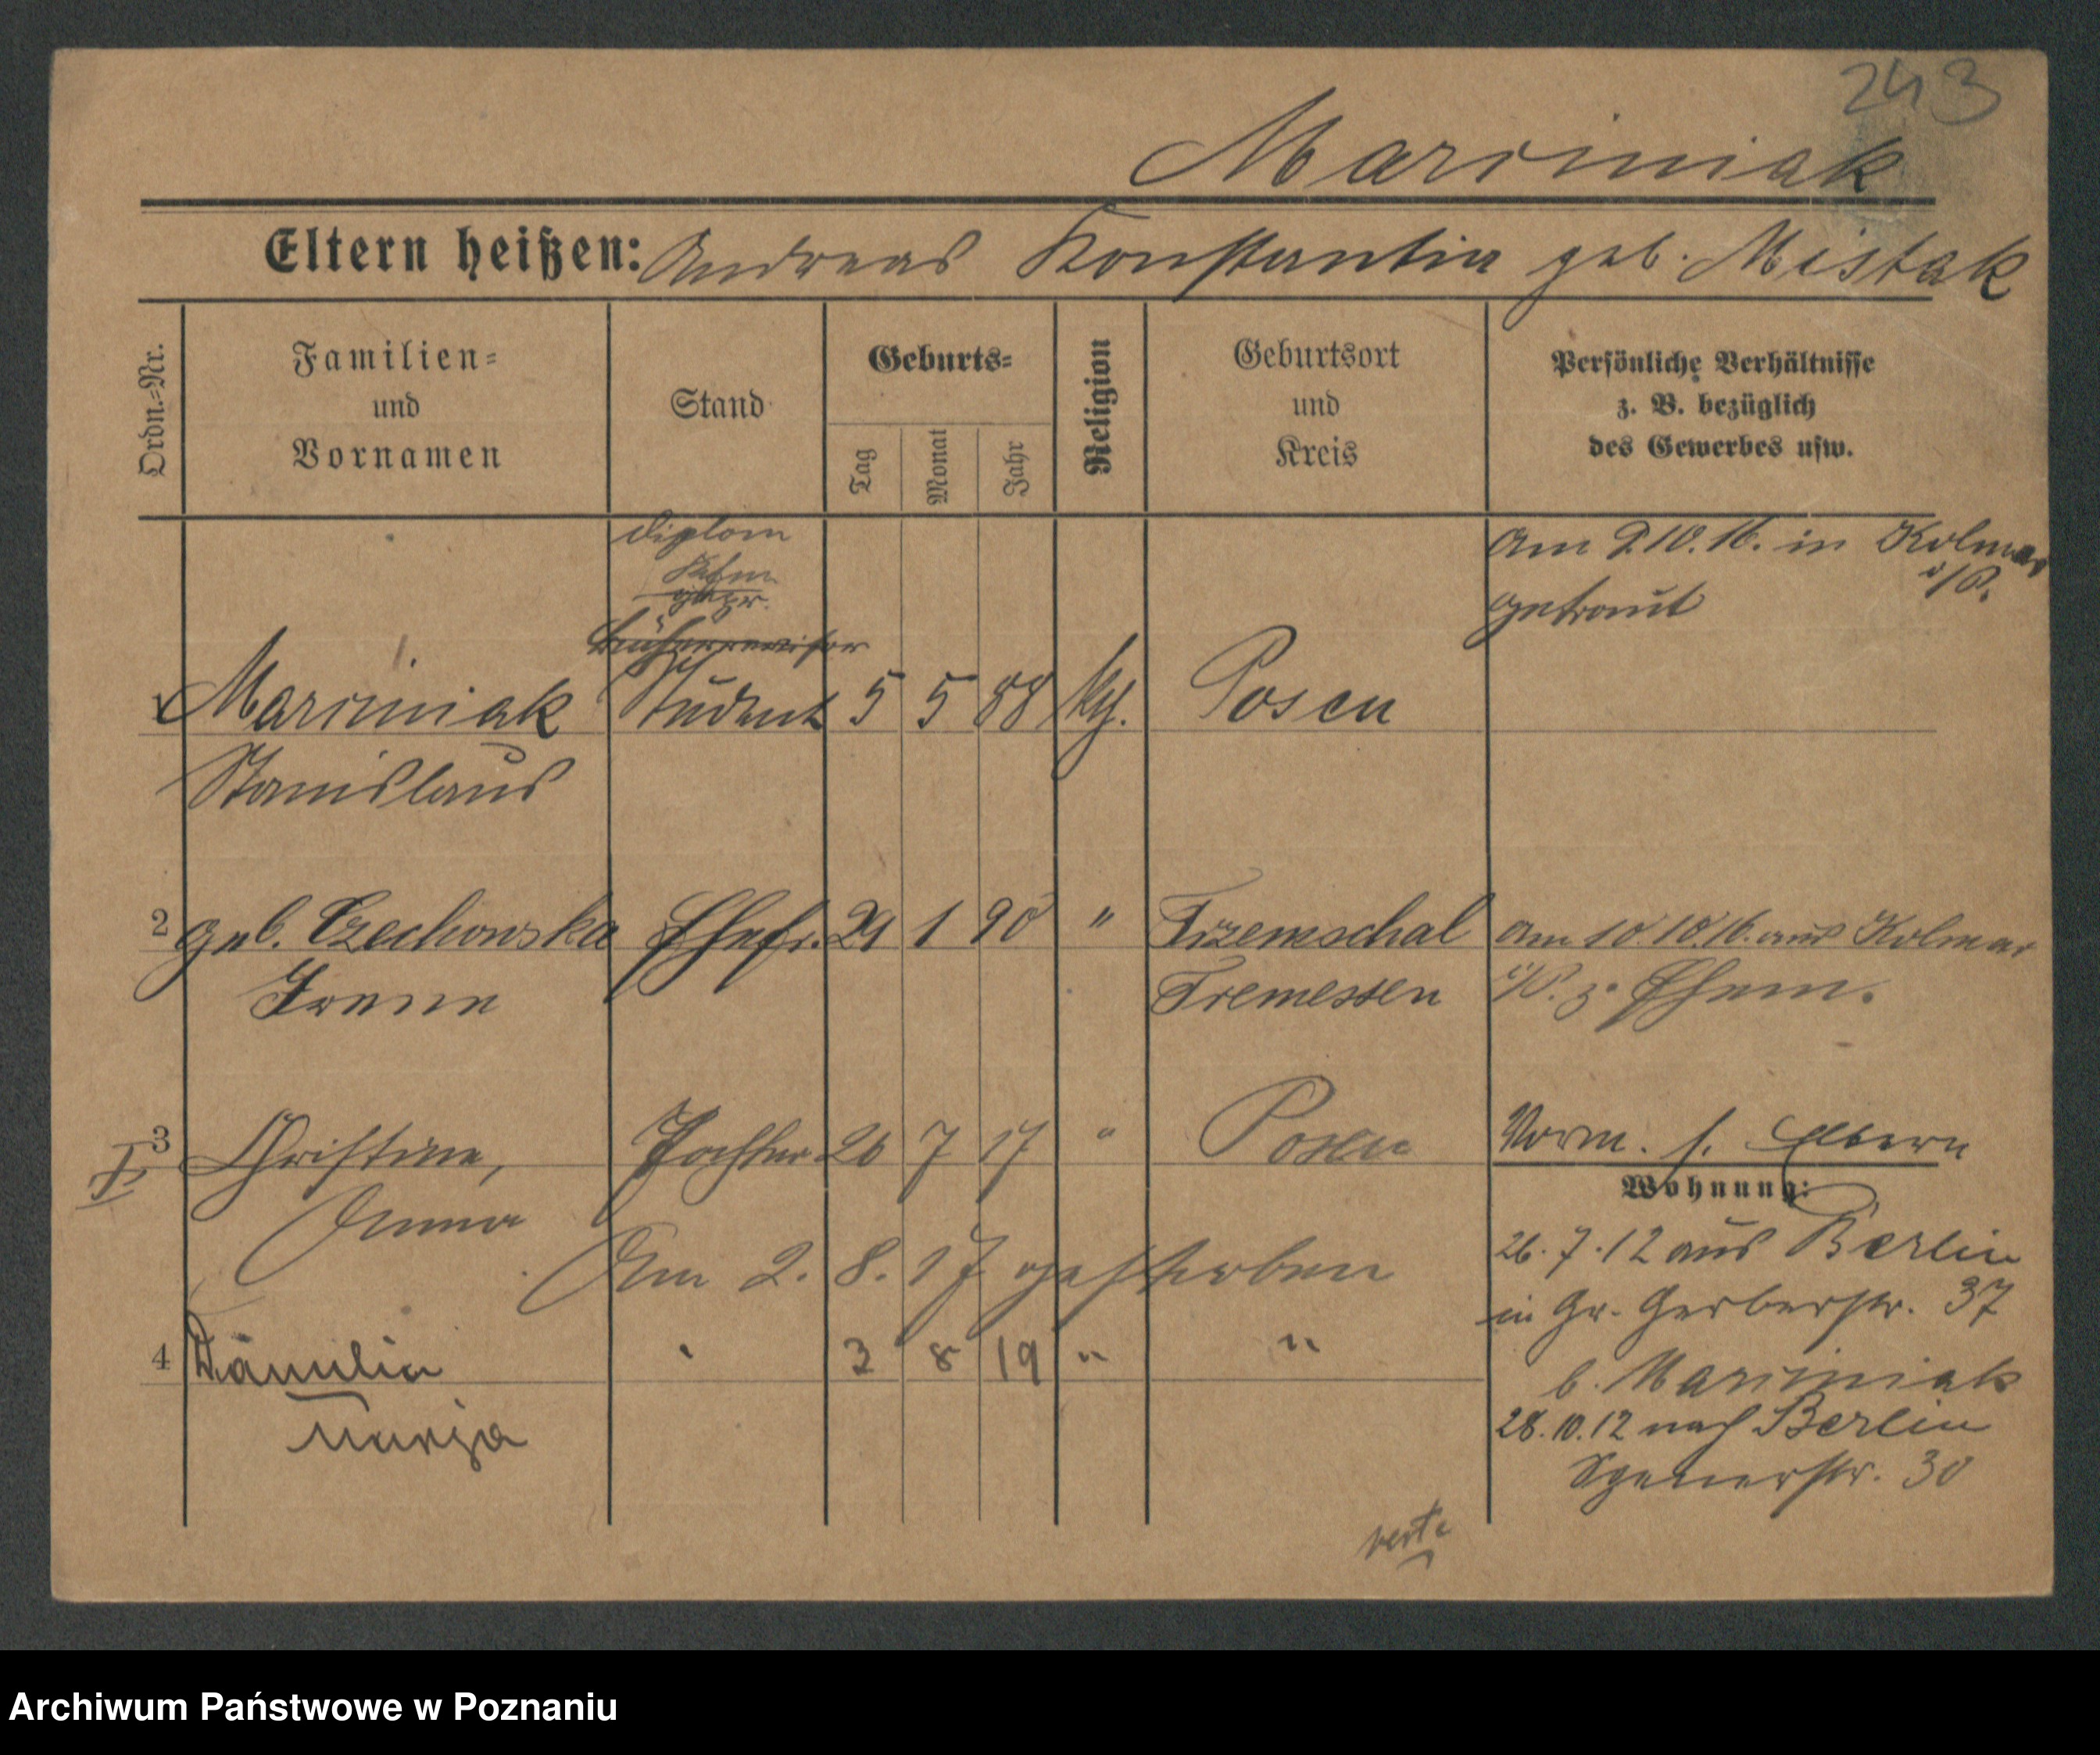 243
Marciniak
Eltern heißen: Andreas Konstantia geb. Mistak
Ordn.-Nr.
Familien-
und
Vornamen
Stand
Geburts-
Tag
Monat
Jahr
Religion
Geburtsort
und
Kreis
Persönliche Verhältnisse
z. B. bezüglich
des Gewerbes usw.
diplom
Kfm
Bücherrevisor
am 2.10.16. in Kolmar
i/P.
getraut
1 Marciniak Student 5 5 88 kth. Posen
Stanislaus
2 geb. Czechowska Ehefr. 29 1 90 " Trzemschal am 10.10.16. aus Kolmar
Irene Tremessen i/P. z. Ehem.
3 Christine, Tochter 26 7 17 " Posen Vorm. s. Eltern
I
Anna
Am 2. 8. 17 gestorben
Wohnung:
26.7.12 aus Berlin
in Gr. Gerberstr. 37
b. Marciniak
28.10.12 nach Berlin
Spenerstr. 30
4 3 8 19 " "
Marja
verte
Archiwum Państwowe w Poznaniu